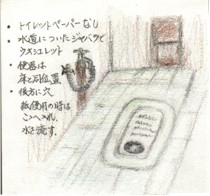 ・トイレットペーパーなし
・水道についたジャバラで
ウォシュレット
・便器は
床と同位置
・後方に穴
紙使用の時は
ここへ入れ、
水を流す。